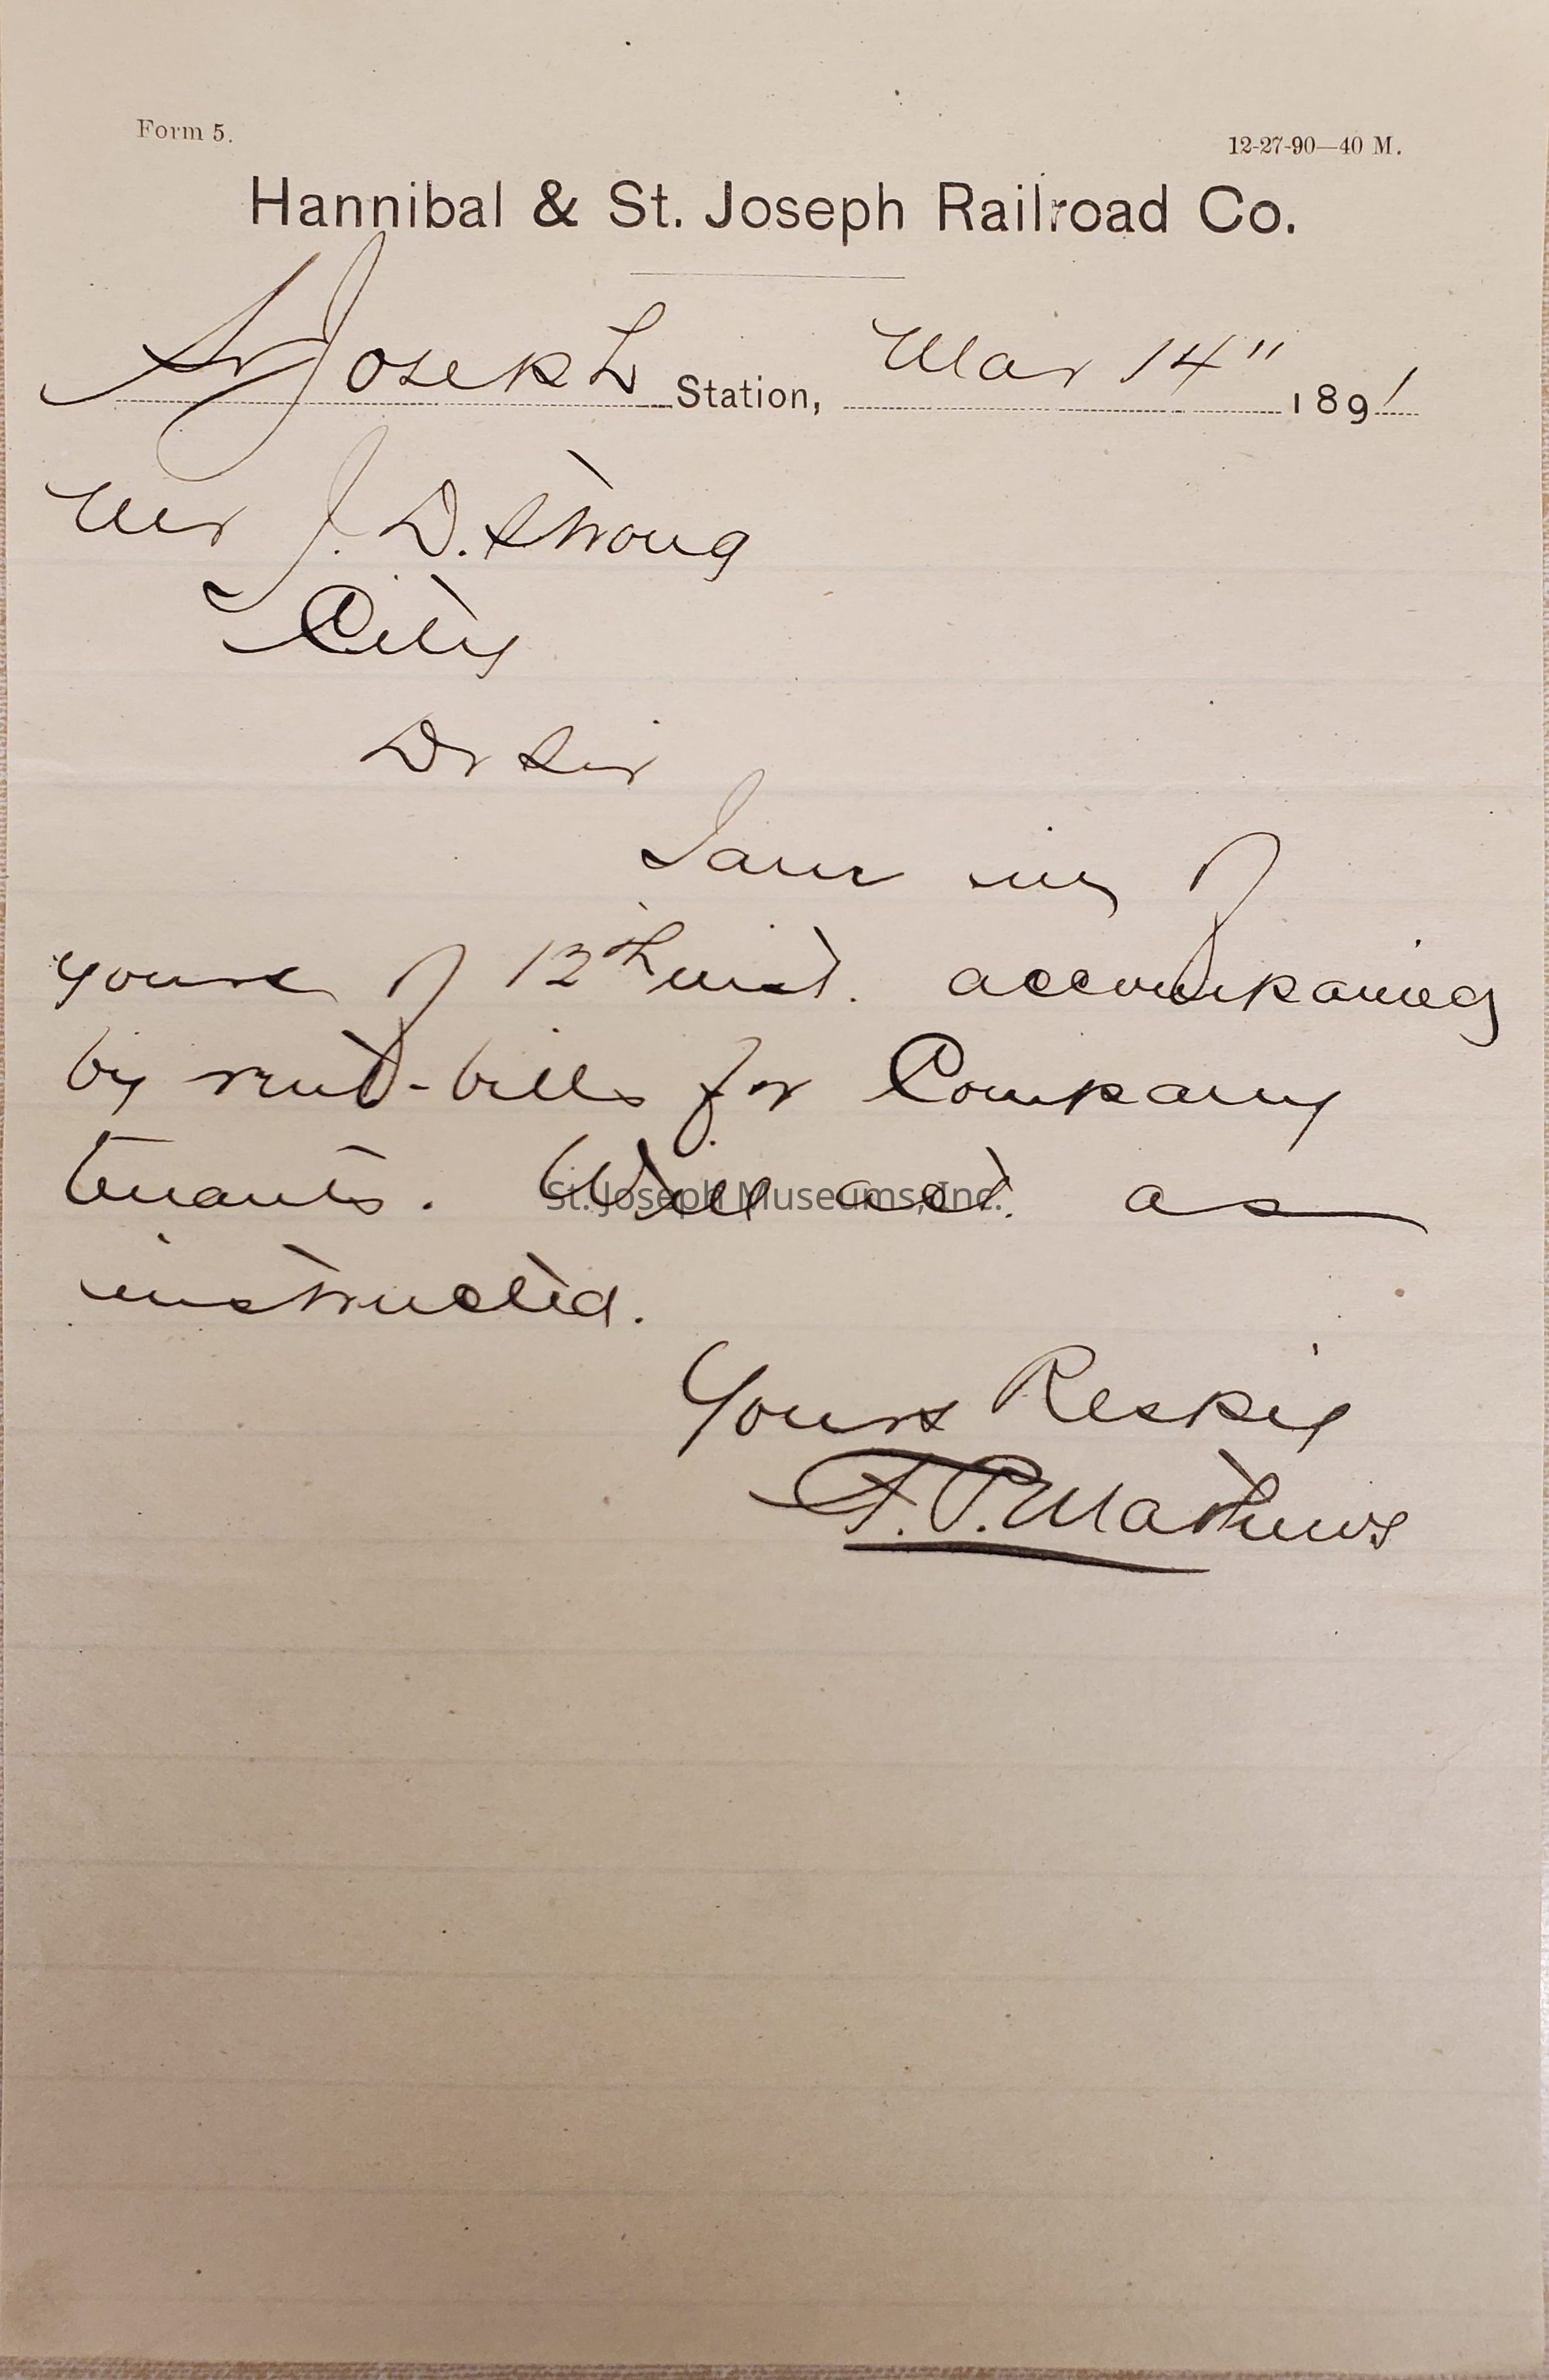 Form 5.
12-27-90—40 M.
Hannibal & St. Joseph Railroad Co.
St Joseph Station, Mar 14" 1891
Mr J. D. Strong
City
Dr Sir
I am in
yours of 12th inst. accompanied
by rent-bills for Company
tenants. Will act as
St. Joseph Museums, Inc.
instructed.
Yours Resply
F. P. Mathews